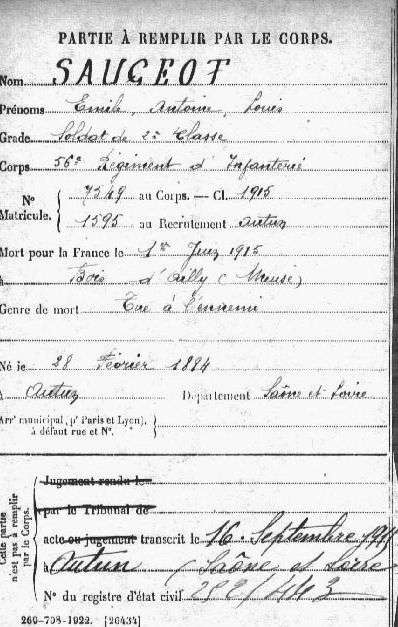 PARTIE À REMPLIR PAR LE CORPS.
Nom SAUGEOT
Prénoms Emile, Antoine, Louis
Grade Soldat de 2e Classe
Corps 56e Régiment d'Infanterie
N° Matricule. { 7549 au Corps. — Cl. 1915
1595 au Recrutement Autun
Mort pour la France le 1er Juin 1915
à Bois d'Ailly (Meuse)
Genre de mort Tué à l'ennemi
Né le 28 Février 1894
à Autun Département Saône et Loire
Arrt municipal (pr Paris et Lyon), à défaut rue et N°. }
Cette partie n'est pas à remplir par le Corps.
Jugement rendu le
par le Tribunal de
acte ou jugement transcrit le 16 Septembre 1915
à Autun (Saône et Loire
N° du registre d'état civil
260-708-1922. [26434]